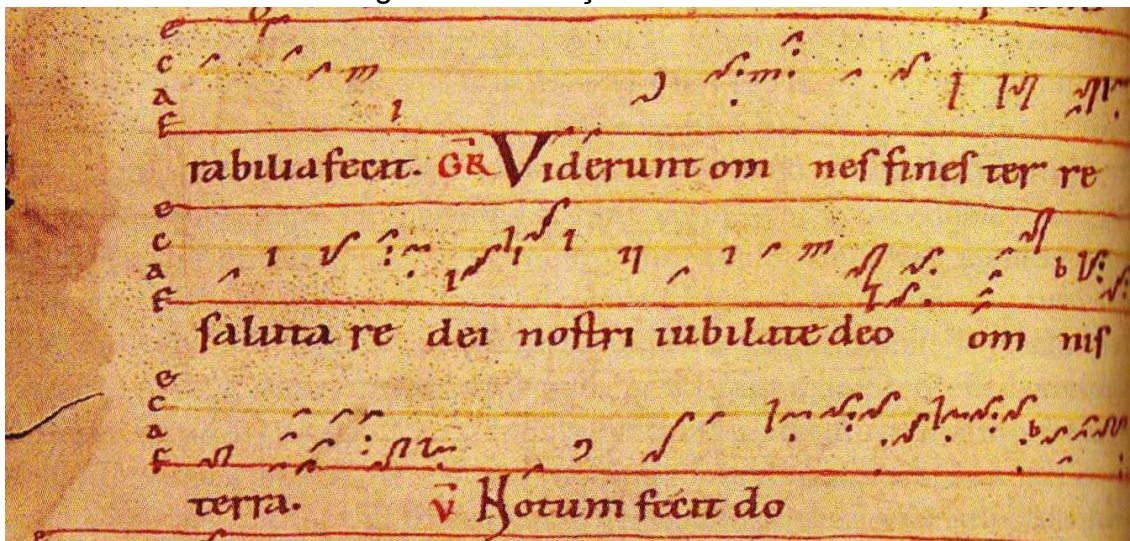 e
c
a
F
rabilia fecit. GR Viderunt om nes fines ter re
e
c
a
F
saluta re dei nostri iubilate deo om nis
b
e
c
a
F
terra. V Notum fecit do
b